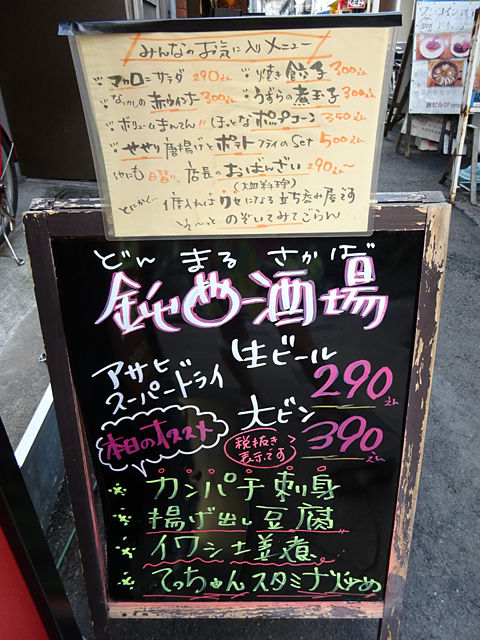 みんなのお気に入りメニュー
マカロニサラダ 290えん
焼き餃子 300えん
なつかしの赤ウインナー 300えん
うずらの煮玉子 300えん
ボリュームまんてん!! ほっとなポップコーン 350えん
せせり唐揚げとポテトフライのset 500えん
他にも日替り、店長のおばんざい 290えん〜
(大皿料理)
とにかく一度入ればクセになる立ち呑み屋です
そ〜っとのぞいてみてごらん
どん まる さかば
鈍〇酒場
アサヒ
スーパードライ
生ビール
290えん
大ビン
390えん
税抜き
表示です
本日のオススメ
カンパチ刺身
揚げ出し豆腐
イワシ土姜煮
てっちゃんスタミナ炒め
ワンコイン
500